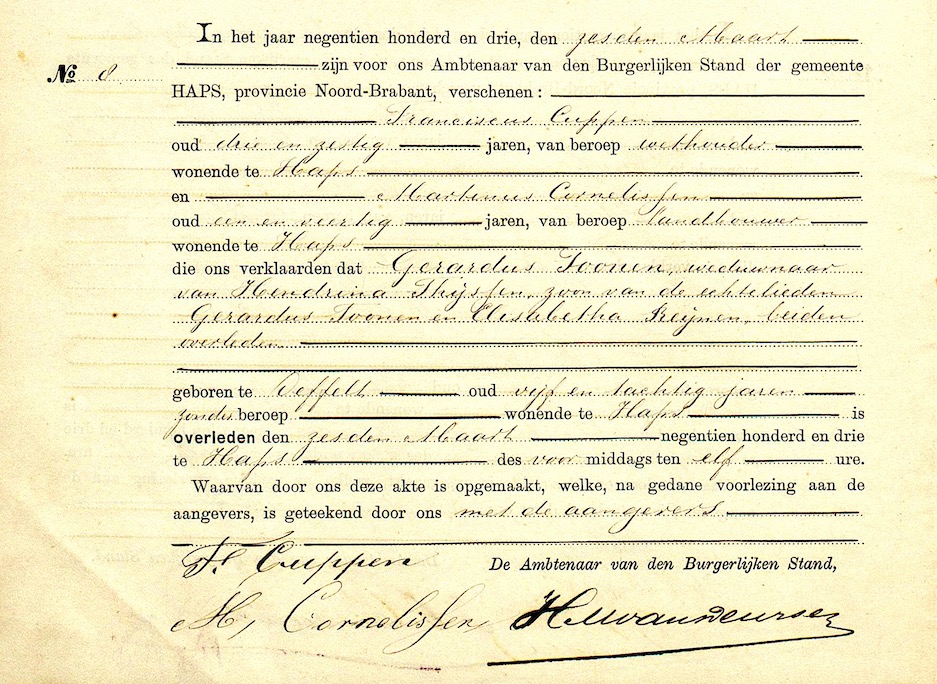 In het jaar negentien honderd en drie, den zesden Maart
№ 8
zijn voor ons Ambtenaar van den Burgerlijken Stand der gemeente
HAPS, provincie Noord-Brabant, verschenen :
Franciscus Cuppen
oud drie en zestig jaren, van beroep wethouder
wonende te Haps
en Martinus Cornelissen
oud een en veertig jaren, van beroep landbouwer
wonende te Haps
die ons verklaarden dat Gerardus Toonen, weduwnaar
van Hendrina Thijssen, zoon van de echtelieden
Gerardus Toonen en Elisabetha Reijnen, beiden
overleden
geboren te Oeffelt oud vijf en tachtig jaren
zonder beroep wonende te Haps is
overleden den zesden Maart negentien honderd en drie
te Haps des voor middags ten elf ure.
Waarvan door ons deze akte is opgemaakt, welke, na gedane voorlezing aan de
aangevers, is geteekend door ons met de aangevers
F. Cuppen De Ambtenaar van den Burgerlijken Stand,
M. Cornelissen